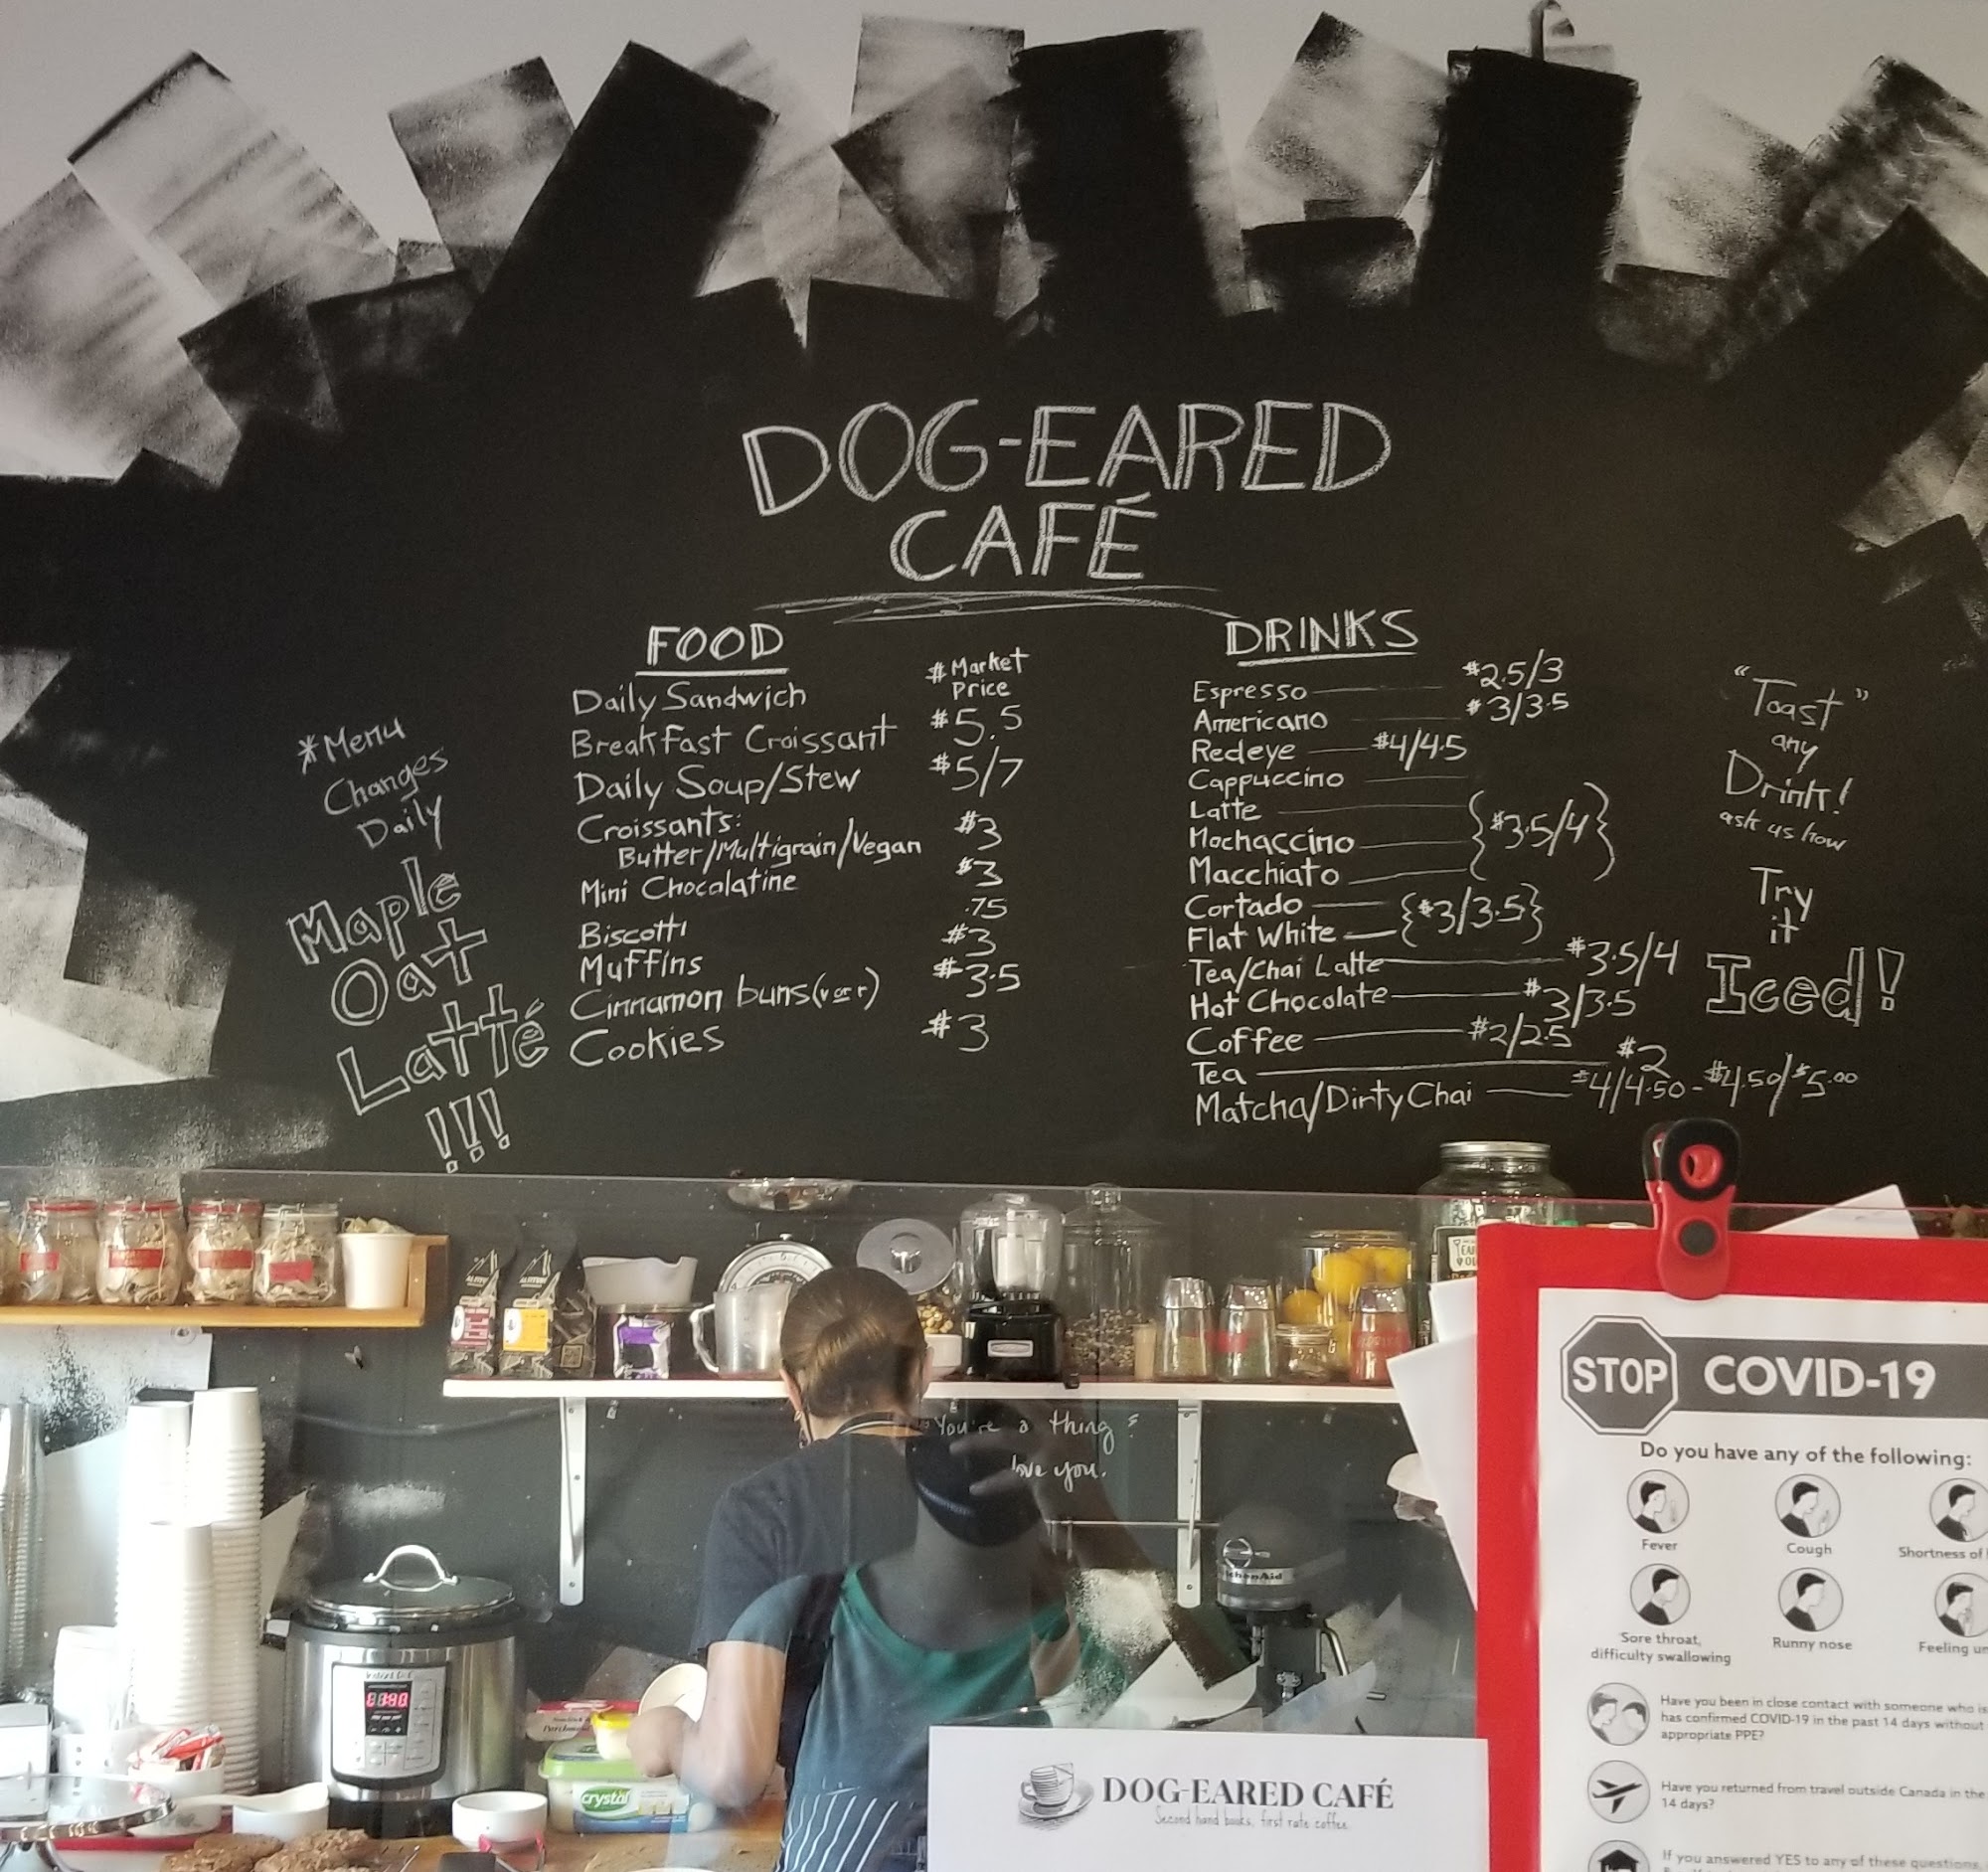 DOG-EARED
CAFÉ
*Menu
Changes
Daily
Maple
Oat
Latté
!!!
FOOD
Daily Sandwich $ Market Price
Breakfast Croissant $5.5
Daily Soup/Stew $5/7
Croissants:
Butter/Multigrain/Vegan $3
Mini Chocolatine $3
Biscotti .75
Muffins $3
Cinnamon buns (v or r) $3.5
Cookies $3
DRINKS
Espresso $2.5/3
Americano $3/3.5
Redeye $4/4.5
Cappuccino
Latte
Mochaccino {$3.5/4}
Macchiato
Cortado {$3/3.5}
Flat White
Tea/Chai Latte $3.5/4
Hot Chocolate $3/3.5
Coffee $2/2.5
Tea $2
Matcha/Dirty Chai $4/4.50 - $4.50/$5.00
"Toast"
any
Drink!
ask us how
Try
it
Iced!
You're a thing &
love you.
KitchenAid
crystal
DOG-EARED CAFÉ
Second hand books, first rate coffee
STOP COVID-19
Do you have any of the following:
Fever
Cough
Shortness of
Sore throat,
difficulty swallowing
Runny nose
Feeling
Have you been in close contact with someone who is
has confirmed COVID-19 in the past 14 days without
appropriate PPE?
Have you returned from travel outside Canada in the
14 days?
If you answered YES to any of these questions